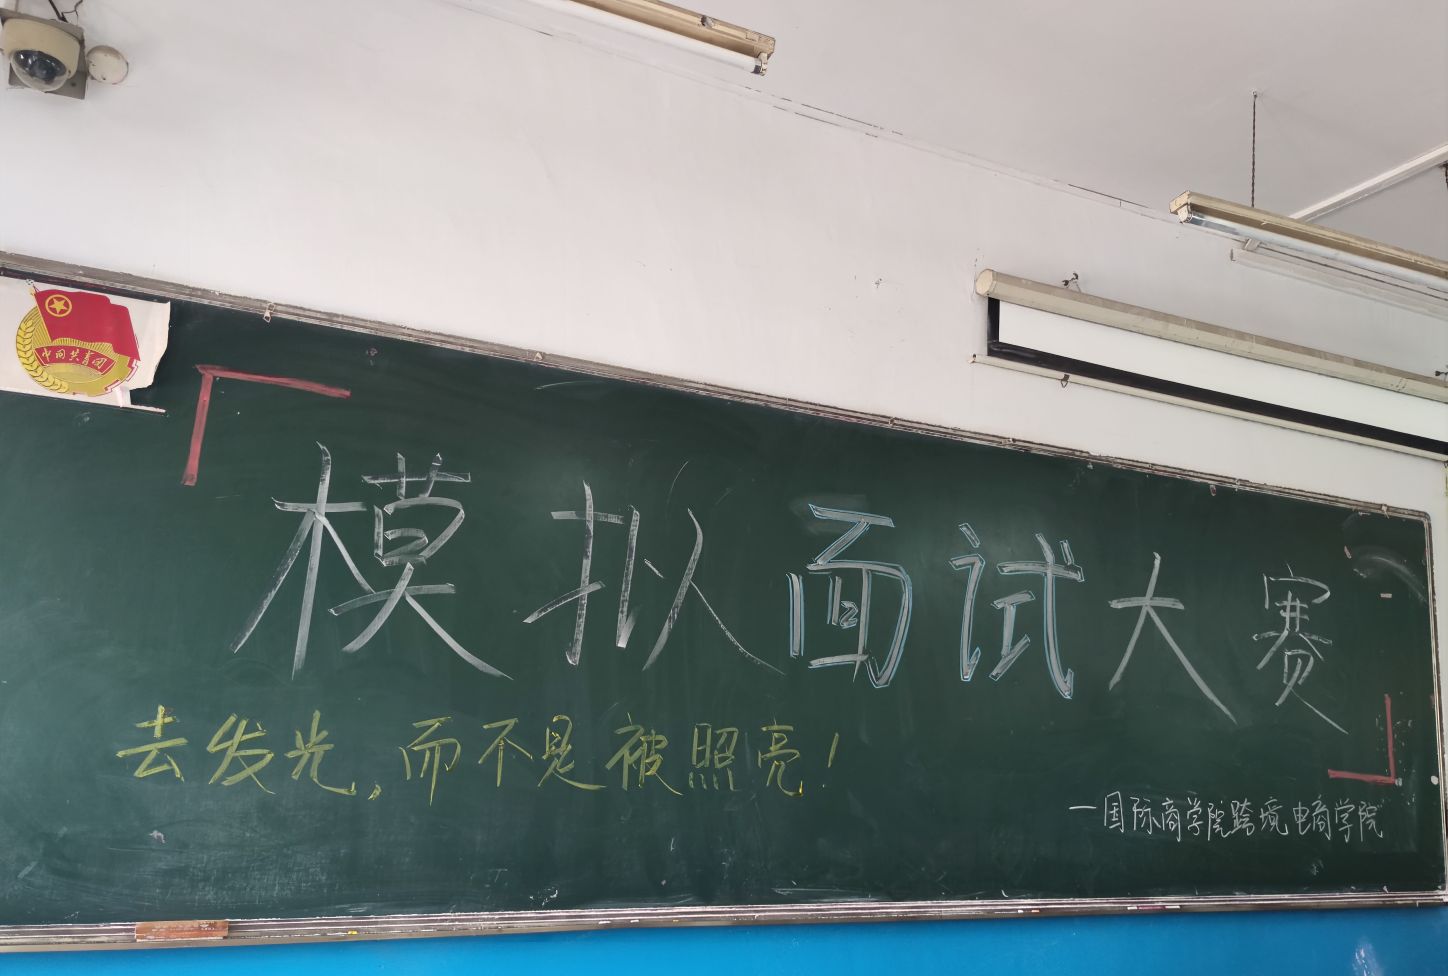 中国共青团
「模拟面试大赛」
去发光,而不是被照亮!
—国际商学院跨境电商学院